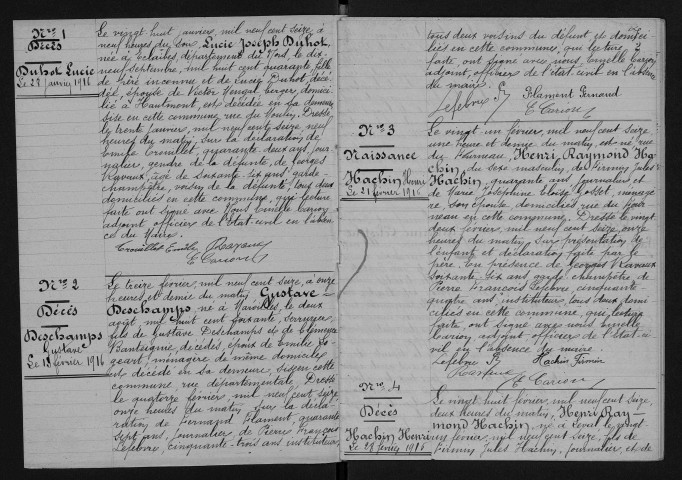 Nro 1
Décès
Duhot Lucie
Le 28 janvier 1916
Le vingt huit janvier, mil neuf cent seize à
neuf heures du soir Lucie Joseph Duhot,
née à Eclaibes, département du Nord, le dix
neuf septembre, mil huit cent quarante fille
père inconnu et de Lucie Duhot, décé-
dée, épouse de Victor Mengal berger domici-
lié à Hautmont, est décédée en sa demeure
sise en cette commune, rue du Dressé
le trente janvier, mil neuf cent seize, neuf
heures du matin, sur la déclaration de
Emile Trouillet, quarante deux ans, jour-
nalier, gendre de la défunte, de Georges
Ravaux, âgé de soixante-six ans garde-
champêtre, voisin de la défunte, tous deux
domiciliés en cette commune, qui lecture
faite ont signé avec Nous Emile Carion
adjoint officier de l'état-civil en l'absen-
ce du Maire.
Trouillet Emile Ravaux
E Carion
Nro 2
Décès
Deschamps
Gustave
Le 13 février 1916
Le treize février, mil neuf cent seize, à onze
heures et demie du matin Gustave
Deschamps né à Maroilles, le deux
août, mil huit cent soixante, serrurier,
fils de Gustave Deschamps et de Clémence
Banteignie, décédés, époux de Emilie
ménagère de même domicile
est décédé en sa demeure, sise en cette
commune rue départementale, Dressé
le quatorze février, mil neuf cent seize,
onze heures du matin, sur la décla-
ration de Fernand Flament, quarante
sept ans, journalier de Pierre François
Lefebvre, cinquante-trois ans instituteur,
tous deux voisins du défunt et domici-
liés en cette commune, qui lecture
faite, ont signé avec nous Emile Carion,
adjoint, officier de l'état-civil en l'absence
du maire.
Lefebvre P. Flament Fernand
E Carion
Nro 3
Naissance
Hachin Henri
Le 21 février 1916
Le vingt un février, mil neuf cent seize
une heure et demie du matin, est né rue
du Fourneau, Henri, Raymond Ha-
chin, du sexe masculin, de Firmin Jules
Hachin, quarante ans journalier et
de Marie Joséphine Eloïse Osset, ménagè-
re, son épouse domiciliés rue du Four-
neau en cette commune. Dressé le vingt
deux février, mil neuf cent seize, onze
heures du matin, sur présentation de
l'enfant et déclaration faite par le
père. En présence de Georges Ravaux
soixante-six ans, garde champêtre de
Pierre François Lefebvre, cinquante-
quatre ans, instituteur, tous deux domi-
ciliés en cette commune, qui, lecture
faite, ont signé avec nous Emile
Carion, adjoint, officier de l'état-ci-
vil en l'absence du maire.
Lefebvre P. Hachin Firmin
Ravaux
E Carion
Nro 4
Décès
Hachin Henri
Le 28 février 1916
Le vingt huit février, mil neuf cent seize,
deux heures du matin, Henri Ray-
mond Hachin, né à Leval le vingt
un février, mil neuf cent seize, fils de
Firmin Jules Hachin, journalier, et de